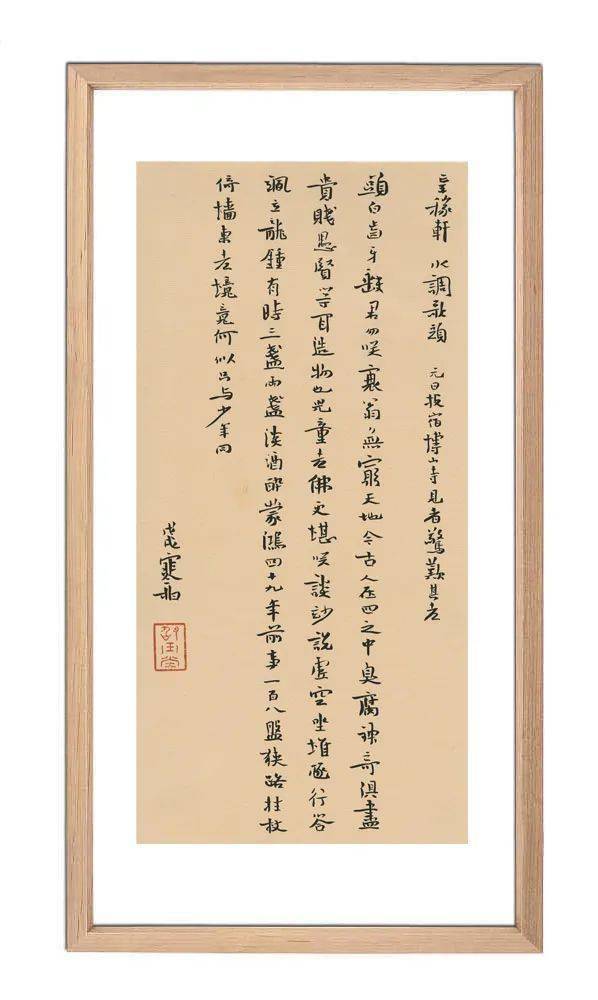 辛稼軒 水調歌頭 元日投宿博山寺見者驚歎其老
頭白齒牙缺君勿咲衰翁無窮天地今古人在四之中臭腐神奇俱盡
貴賤愚賢等耳造物也兒童老佛更堪咲談妙説虛空坐堆豗行答
颯立龍鍾有時三盞兩盞淡酒醉蒙鴻四十九年前事一百八盤狹路拄杖
倚墻東老境竟何似只与少年同
戊戌寒